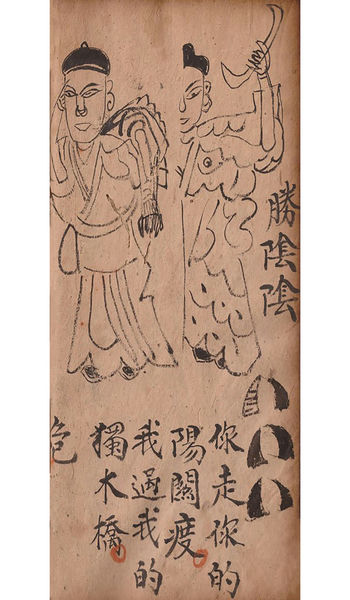 勝陰陰
你走你的
陽關度
我過我的
獨木橋